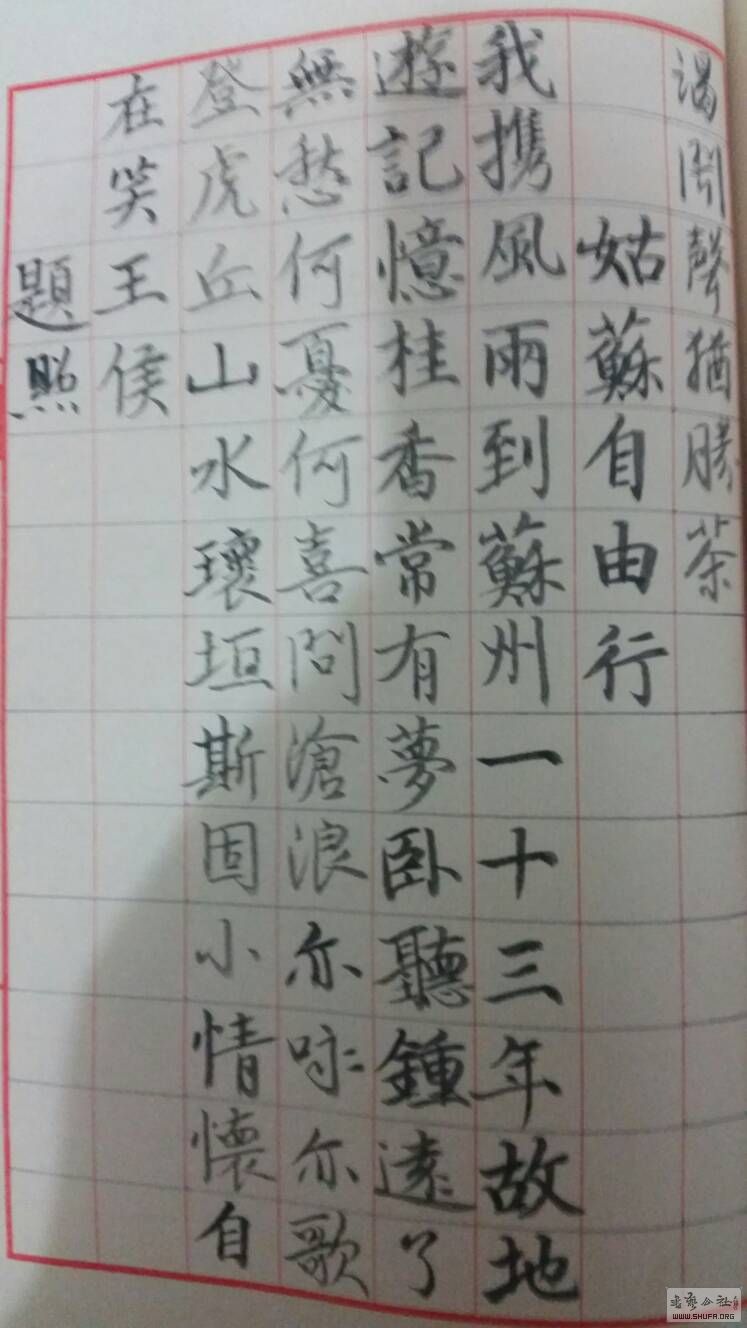 渴闻聲猶勝茶
姑蘇自由行
我攜風雨到蘇州一十三年故地
遊記憶桂香常有夢卧聽鍾遠了
無愁何憂何喜問滄浪亦咏亦歌
登虎丘山水環垣斯固小情懷自
在笑王侯
題照
WWW.SHUFA.ORG